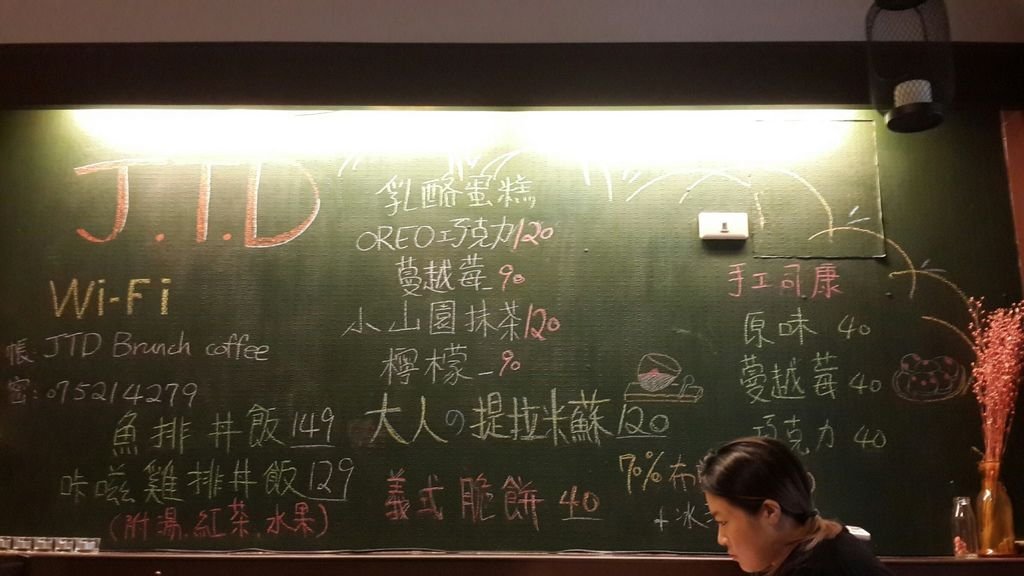 J.T.D
Wi-Fi
帳 JTD Brunch coffee
密:075214279
魚排丼飯149
咔滋雞排丼飯129
(附湯.紅茶.水果)
乳酪蛋糕
OREO巧克力120
蔓越莓90
小山園抹茶120
檸檬_90
大人の提拉米蘇120
義式脆餅 40
手工司康
原味 40
蔓越莓 40
巧克力 40
70%布
+冰